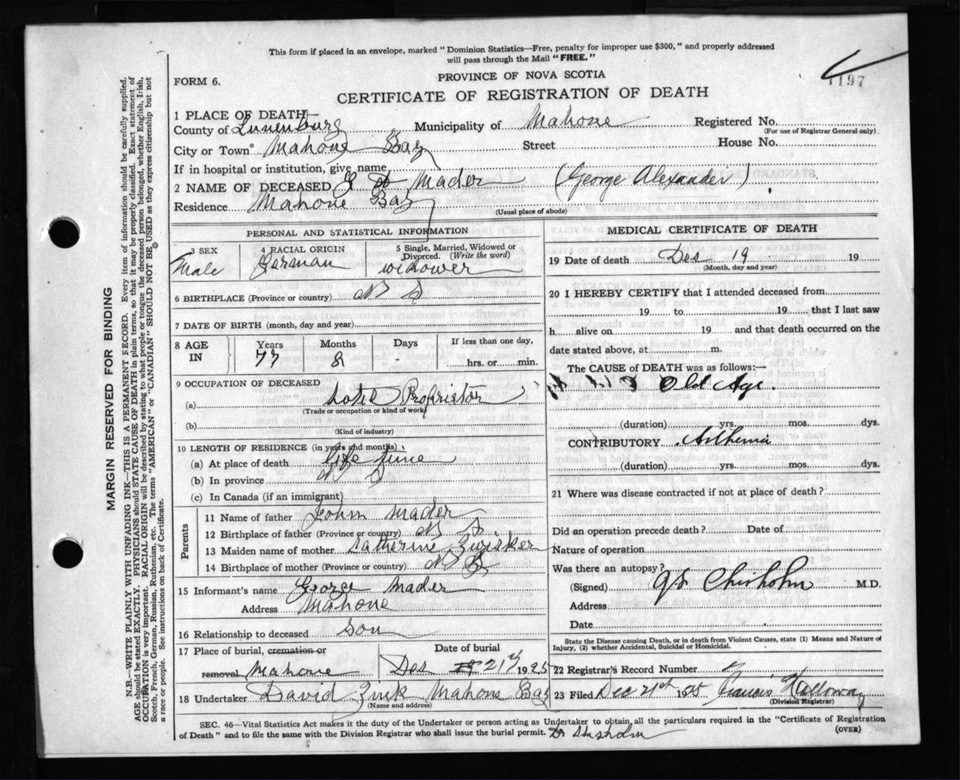 This form if placed in an envelope, marked "Dominion Statistics—Free, penalty for improper use $300," and properly addressed
will pass through the Mail "FREE."
1197
FORM 6.
PROVINCE OF NOVA SCOTIA
CERTIFICATE OF REGISTRATION OF DEATH
1 PLACE OF DEATH—
County of Lunenburg Municipality of Mahone Registered No.
(For use of Registrar General only)
City or Town Mahone Bay Street House No.
If in hospital or institution, give name
2 NAME OF DECEASED G Mader (George Alexander)
Residence Mahone Bay
(Usual place of abode)
PERSONAL AND STATISTICAL INFORMATION
3 SEX
Male
4 RACIAL ORIGIN
German
5 Single, Married, Widowed or
Divorced. (Write the word)
widower
6 BIRTHPLACE (Province or country) N S
7 DATE OF BIRTH (month, day and year)
8 AGE
IN
Years
77
Months
8
Days
-
If less than one day,
hrs. or min.
9 OCCUPATION OF DECEASED
(a) Hotel Proprietor
(Trade or occupation or kind of work)
(b)
(Kind of industry)
10 LENGTH OF RESIDENCE (in years and months)
(a) At place of death life time
(b) In province
(c) In Canada (if an immigrant)
Parents
11 Name of father John Mader
12 Birthplace of father (Province or country) N S
13 Maiden name of mother Catherine Zwicker
14 Birthplace of mother (Province or country) N S
15 Informant's name George Mader
Address Mahone
16 Relationship to deceased son
17 Place of burial, cremation or
removal Mahone
Date of burial
Dec 21st 1925
18 Undertaker David Zink Mahone Bay
(Name and address)
MEDICAL CERTIFICATE OF DEATH
19 Date of death Dec 19 19
(Month, day and year)
20 I HEREBY CERTIFY that I attended deceased from
19 to 19 that I last saw
h alive on 19 and that death occurred on the
date stated above, at m.
The CAUSE of DEATH was as follows:—
Old Age
(duration) yrs. mos. dys.
CONTRIBUTORY Asthenia
(duration) yrs. mos. dys.
21 Where was disease contracted if not at place of death?
Did an operation precede death? Date of
Nature of operation
Was there an autopsy?
(Signed) Chisholm M.D.
Address
Date
State the Disease causing Death, or in death from Violent Causes, state (1) Means and Nature of
Injury, (2) whether Accidental, Suicidal or Homicidal.
22 Registrar's Record Number
23 Filed Dec 21st 1925 Francis Holloway
(Division Registrar)
SEC. 46—Vital Statistics Act makes it the duty of the Undertaker or person acting as Undertaker to obtain all the particulars required in the "Certificate of Registration
of Death" and to file the same with the Division Registrar who shall issue the burial permit. Dr Chisholm
(OVER)
MARGIN RESERVED FOR BINDING
N.B.—WRITE PLAINLY WITH UNFADING INK—THIS IS A PERMANENT RECORD. Every item of information should be carefully supplied.
AGE should be stated EXACTLY. PHYSICIANS should STATE CAUSE OF DEATH in plain terms, so that it may be properly classified. Exact statement of
OCCUPATION is very important. RACIAL ORIGIN will be described by stating to what people or tongue the deceased person belonged, whether English, Irish,
Scotch, French, German, Russian, Ruthenian, etc. The terms "AMERICAN" or "CANADIAN" SHOULD NOT BE USED as they express citizenship but not
a race or people. See instructions on back of Certificate.